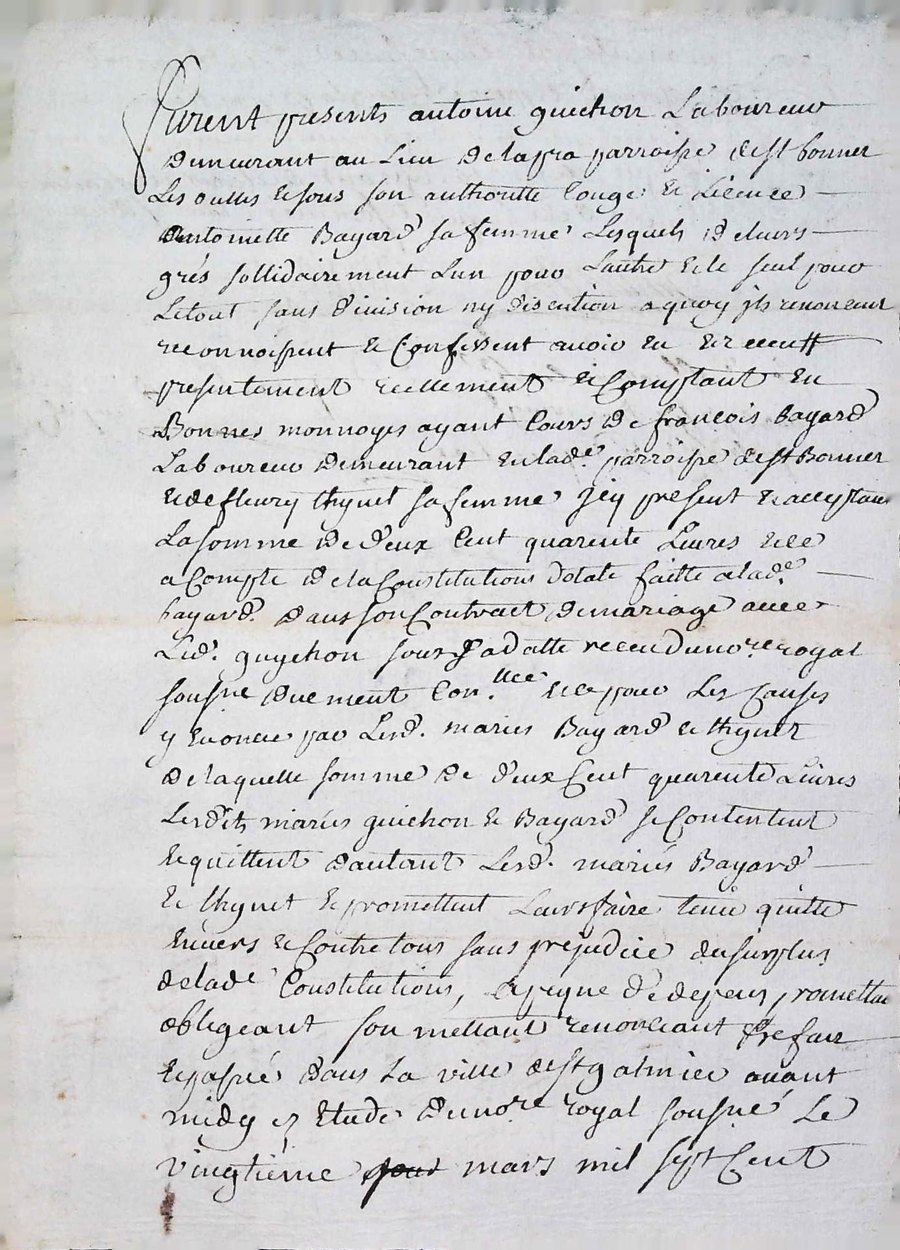 furent presents antoine guichon Laboureur
demeurant au Lieu delapra parroisse de st bonnet
Les oulles & sous son authoritté Congé & Licence
antoinette Bayard sa femme Lesquels de leurs
grés sollidairement L'un pour L'autre & le seul pour
Letout sans division ny discution a quoy jls renoncent
reconnoissent & Confessent avoir Eu & receu
presentement reellement & Comptant En
Bonnes monnoyes ayant Cours de françois Bayard
Laboureur demeurant En lade. parroisse de st Bonnet
& de fleury thynet sa femme jcy present & acceptant
La somme de deux Cent quarente Livres & ce
a Compte de la Constitutions dotale faitte a lade.
bayard. dans son Contract de mariage avec
Led. guychon sous sa datte receu du nore royal
soussne duement Con.llee & ce pour Les Causes
y Enoncé par Lesd. mariés Bayard & thynet
de laquelle somme de deux Cent quarente Livres
Lesdits mariés guichon & Bayard se Contentent
& quittent d'autant Lesd. mariés Bayard
& thynet & promettent Leurs faire tenir quitte
Envers & Contre tous sans prejudice du surplus
de lade Constitutions, a peyne de depens, promettant
obligeant soumettant renonceant fait
& passé dans La ville de st galmier avant
midy Etude du nore royal soussné Le
vingtième mars mil sept Cent